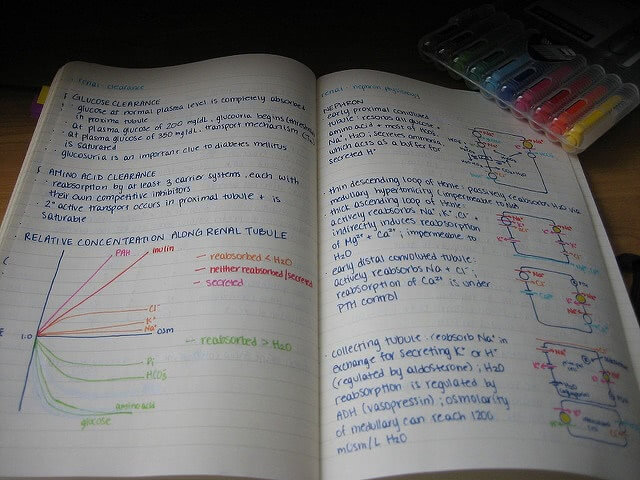 renal clearance
GLUCOSE CLEARANCE
glucose at normal plasma level is completely absorbed
in proximal tubule
at plasma glucose of 200 mg/dL, glucosuria begins (threshold)
at plasma glucose of 350 mg/dL, transport mechanism
is saturated
glucosuria is an important clue to diabetes mellitus
AMINO ACID CLEARANCE
reabsorption by at least 3 carrier systems, each with
their own competitive inhibitors
2° active transport occurs in proximal tubule + is
saturable
RELATIVE CONCENTRATION ALONG RENAL TUBULE
PAH
inulin
reabsorbed < H₂O
neither reabsorbed/secreted
secreted
Cl⁻
K⁺
Na⁺
osm
1.0
reabsorbed > H₂O
Pi
HCO₃
amino acid
glucose
renal - nephron physiology
NEPHRON
early proximal convoluted
tubule: resorbs all glucose +
amino acids + most of HCO₃,
Na⁺, H₂O; secretes ammonia,
which acts as a buffer for
secreted H⁺
thin descending loop of Henle: passively reabsorbs H₂O via
medullary hypertonicity (impermeable to Na⁺)
thick ascending loop of Henle:
actively reabsorbs Na⁺, K⁺, Cl⁻ +
indirectly induces reabsorption
of Mg²⁺ + Ca²⁺; impermeable to
H₂O
early distal convoluted tubule:
actively reabsorbs Na + Cl⁻;
reabsorption of Ca²⁺ is under
PTH control
collecting tubule: reabsorb Na⁺ in
exchange for secreting K⁺ or H⁺
(regulated by aldosterone); H₂O
reabsorption is regulated by
ADH (vasopressin); osmolarity
of medullary can reach 1200
mOsm/L H₂O